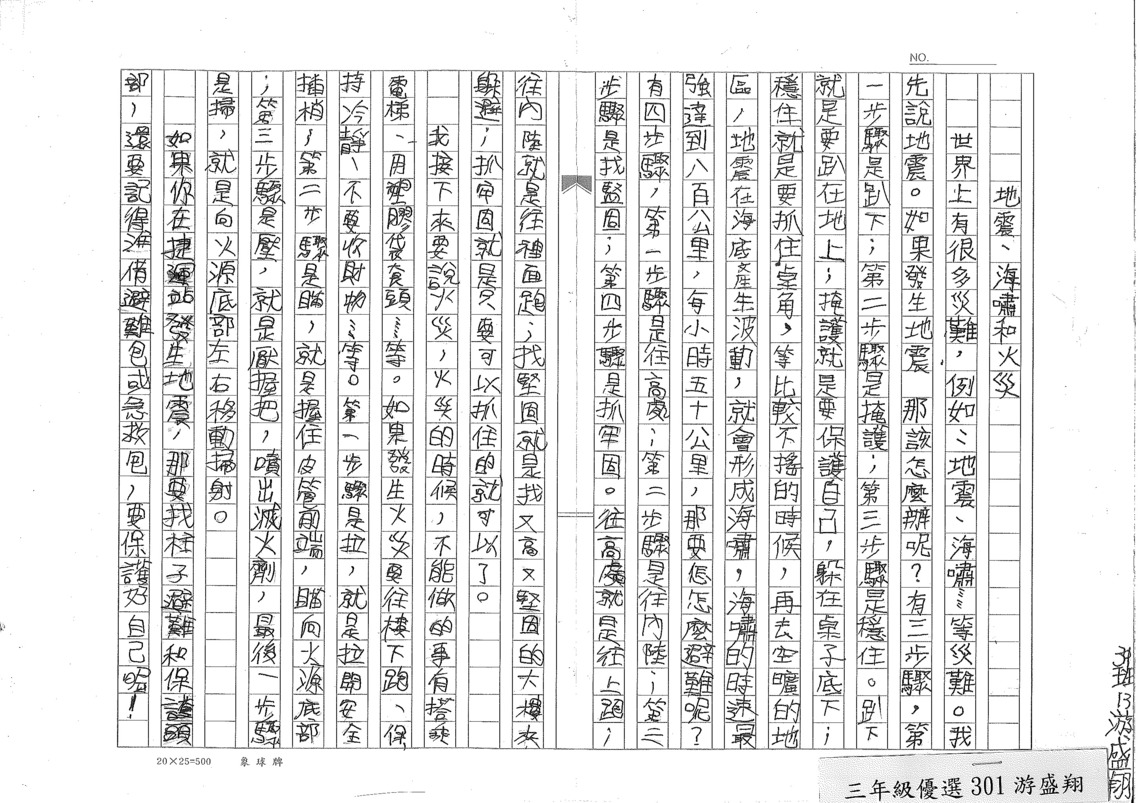 NO.
地震、海嘯和火災
世界上有很多災難，例如：地震、海嘯……等災難。我
先說地震。如果發生地震 那該怎麼辦呢？有三步驟，第
一步驟是趴下；第二步驟是掩護；第三步驟是穩住。趴下
就是要趴在地上；掩護就是要保護自己，躲在桌子底下；
穩住就是要抓住桌角，等比較不搖的時候，再去空曠的地
區，地震在海底產生波動，就會形成海嘯，海嘯的時速最
強達到八百公里，每小時五十公里，那要怎怎麼避難呢？
有四步驟，第一步驟是往高處；第二步驟是往內陸；第三
步驟是找堅固；第四步驟是抓牢固。往高處就是往上跑；
往內陸就是往裡面跑；找堅固就是找又高又堅固的大樓來
躲避；抓牢固就是只要可以抓住的就可以了。
我接下來要說火災，火災的時候，不能做的事有搭乘
電梯、用塑膠袋套頭……等。如果發生火災要往樓下跑、保
持冷靜、不要收財物……等。第一步驟是拉，就是拉開安全
插梢；第二步驟是瞄，就是握住皮管前端，瞄向火源底部
；第三步驟是壓，就是壓握把，噴出滅火劑，最後一步驟
是掃，就是向火源底部左右移動掃射。
如果你在捷運站發生地震，那要找柱子避難和保護頭
部，還要記得準備避難包或急救包，要保護好自己喔！
20×25=500 象球牌
三年級優選 301 游盛翔
301班 13 游盛翔